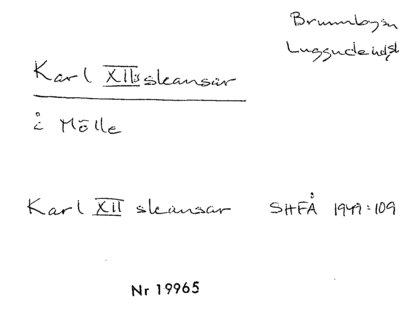 Brunnbysn
Luggudehdst
Karl XII:s skansar
i Mölle
Karl XII skansar SHFÅ 1949:109
Nr 19965